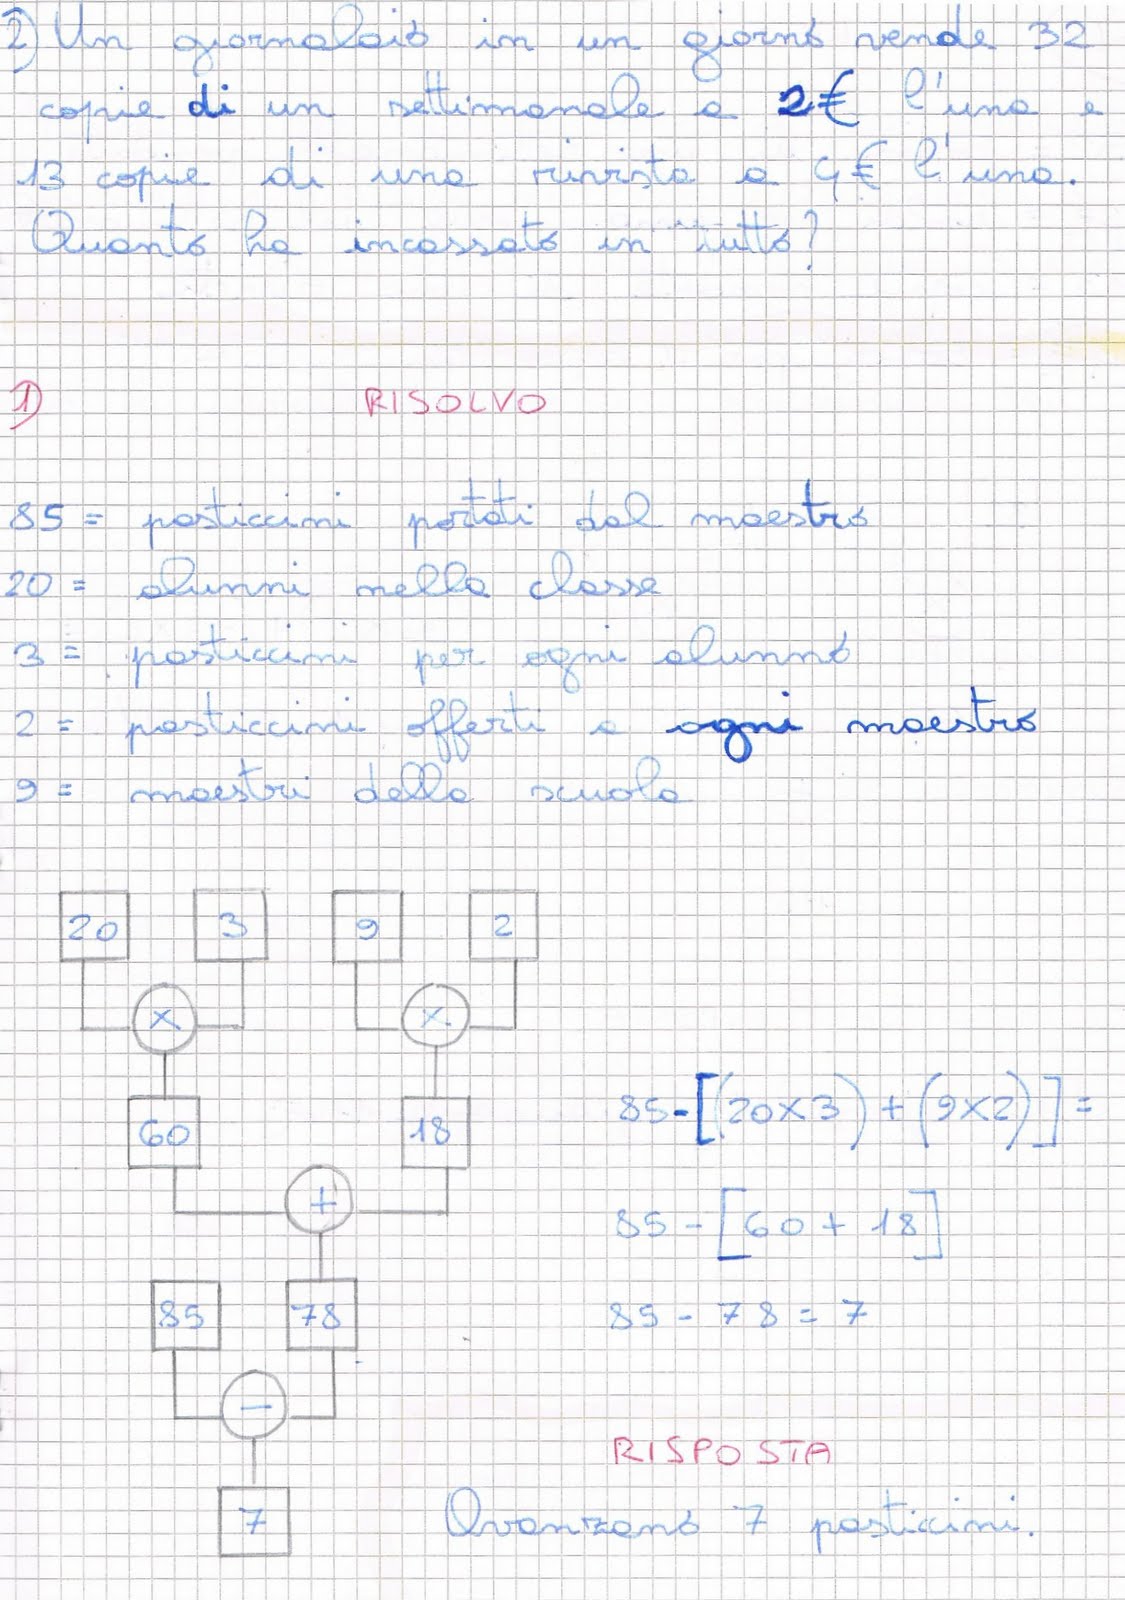 2) Un giornalaio in un giorno vende 32
copie di un settimanale a 2€ l'una e
13 copie di una rivista a 4€ l'una.
Quanto ha incassato in tutto?
1) RISOLVO
85 = pasticcini portati dal maestro
20 = alunni nella classe
3 = pasticcini per ogni alunno
2 = pasticcini offerti a ogni maestro
9 = maestri della scuola
20 3 9 2
× ×
60 18
+
85 78
−
7
85-[(20×3)+(9×2)]=
85-[60+18]
85-78=7
RISPOSTA
Avanzano 7 pasticcini.